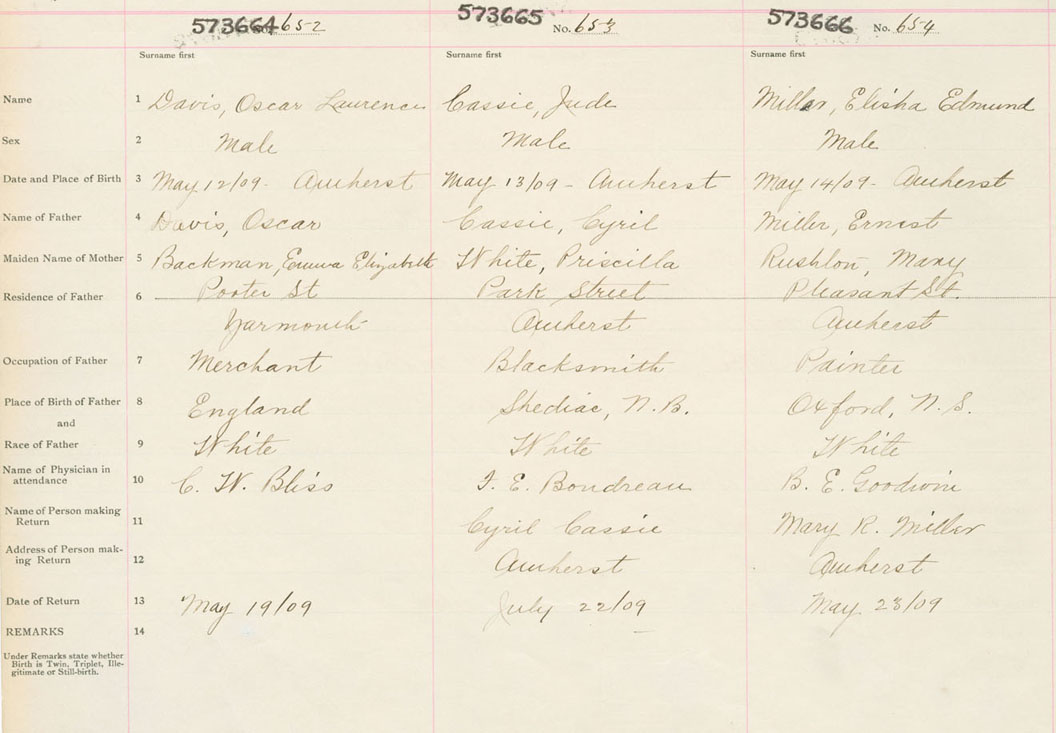 573664 No. 652 573665 No. 653 573666 No. 654
Surname first Surname first Surname first
Name 1 Davis, Oscar Laurence Cassie, Jude Miller, Elisha Edmund
Sex 2 Male Male Male
Date and Place of Birth 3 May 12/09 - Amherst May 13/09 - Amherst May 14/09 - Amherst
Name of Father 4 Davis, Oscar Cassie, Cyril Miller, Ernest
Maiden Name of Mother 5 Backman, Emma Elizabeth White, Priscilla Rushton, Mary
Residence of Father 6 Porter St Park Street Pleasant St.
Yarmouth Amherst Amherst
Occupation of Father 7 Merchant Blacksmith Painter
Place of Birth of Father 8 England Shediac, N.B. Oxford, N.S.
and
Race of Father 9 White White White
Name of Physician in
attendance 10 C. W. Bliss E. Boudreau B. E. Goodwin
Name of Person making
Return 11 Cyril Cassie Mary R. Miller
Address of Person mak-
ing Return 12 Amherst Amherst
Date of Return 13 May 19/09 July 22/09 May 23/09
REMARKS 14
Under Remarks state whether
Birth is Twin, Triplet, Ille-
gitimate or Still-birth.